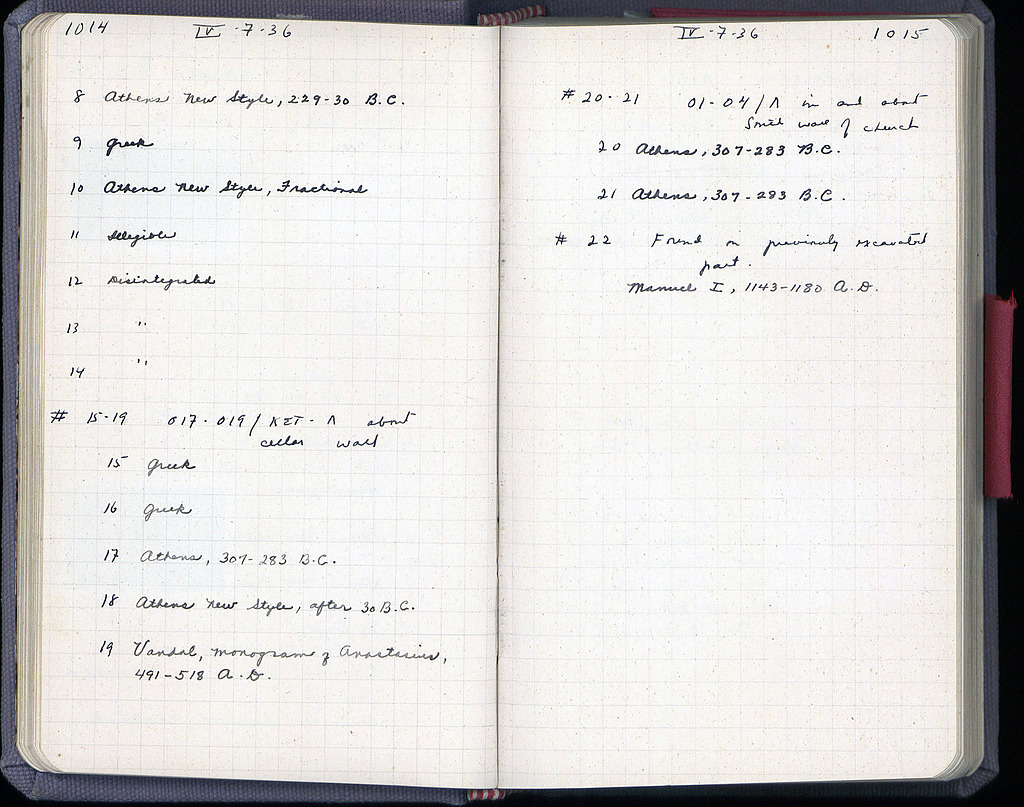 1014 IV -7-36
8 Athens New Style, 229-30 B.C.
9 Greek
10 Athens New Style, Fractional
11 Illegible
12 Disintegrated
13 "
14 "
# 15-19 017-019/ΚΣΤ-Λ about
cellar wall
15 Greek
16 Greek
17 Athens, 307-283 B.C.
18 Athens New Style, after 30 B.C.
19 Vandal, monogram of Anastasius,
491-518 A.D.
IV -7-36 1015
# 20-21 01-04/Λ in and about
South wall of church
20 Athens, 307-283 B.C.
21 Athens, 307-283 B.C.
# 22 Found on previously excavated
part.
Manuel I, 1143-1180 A.D.